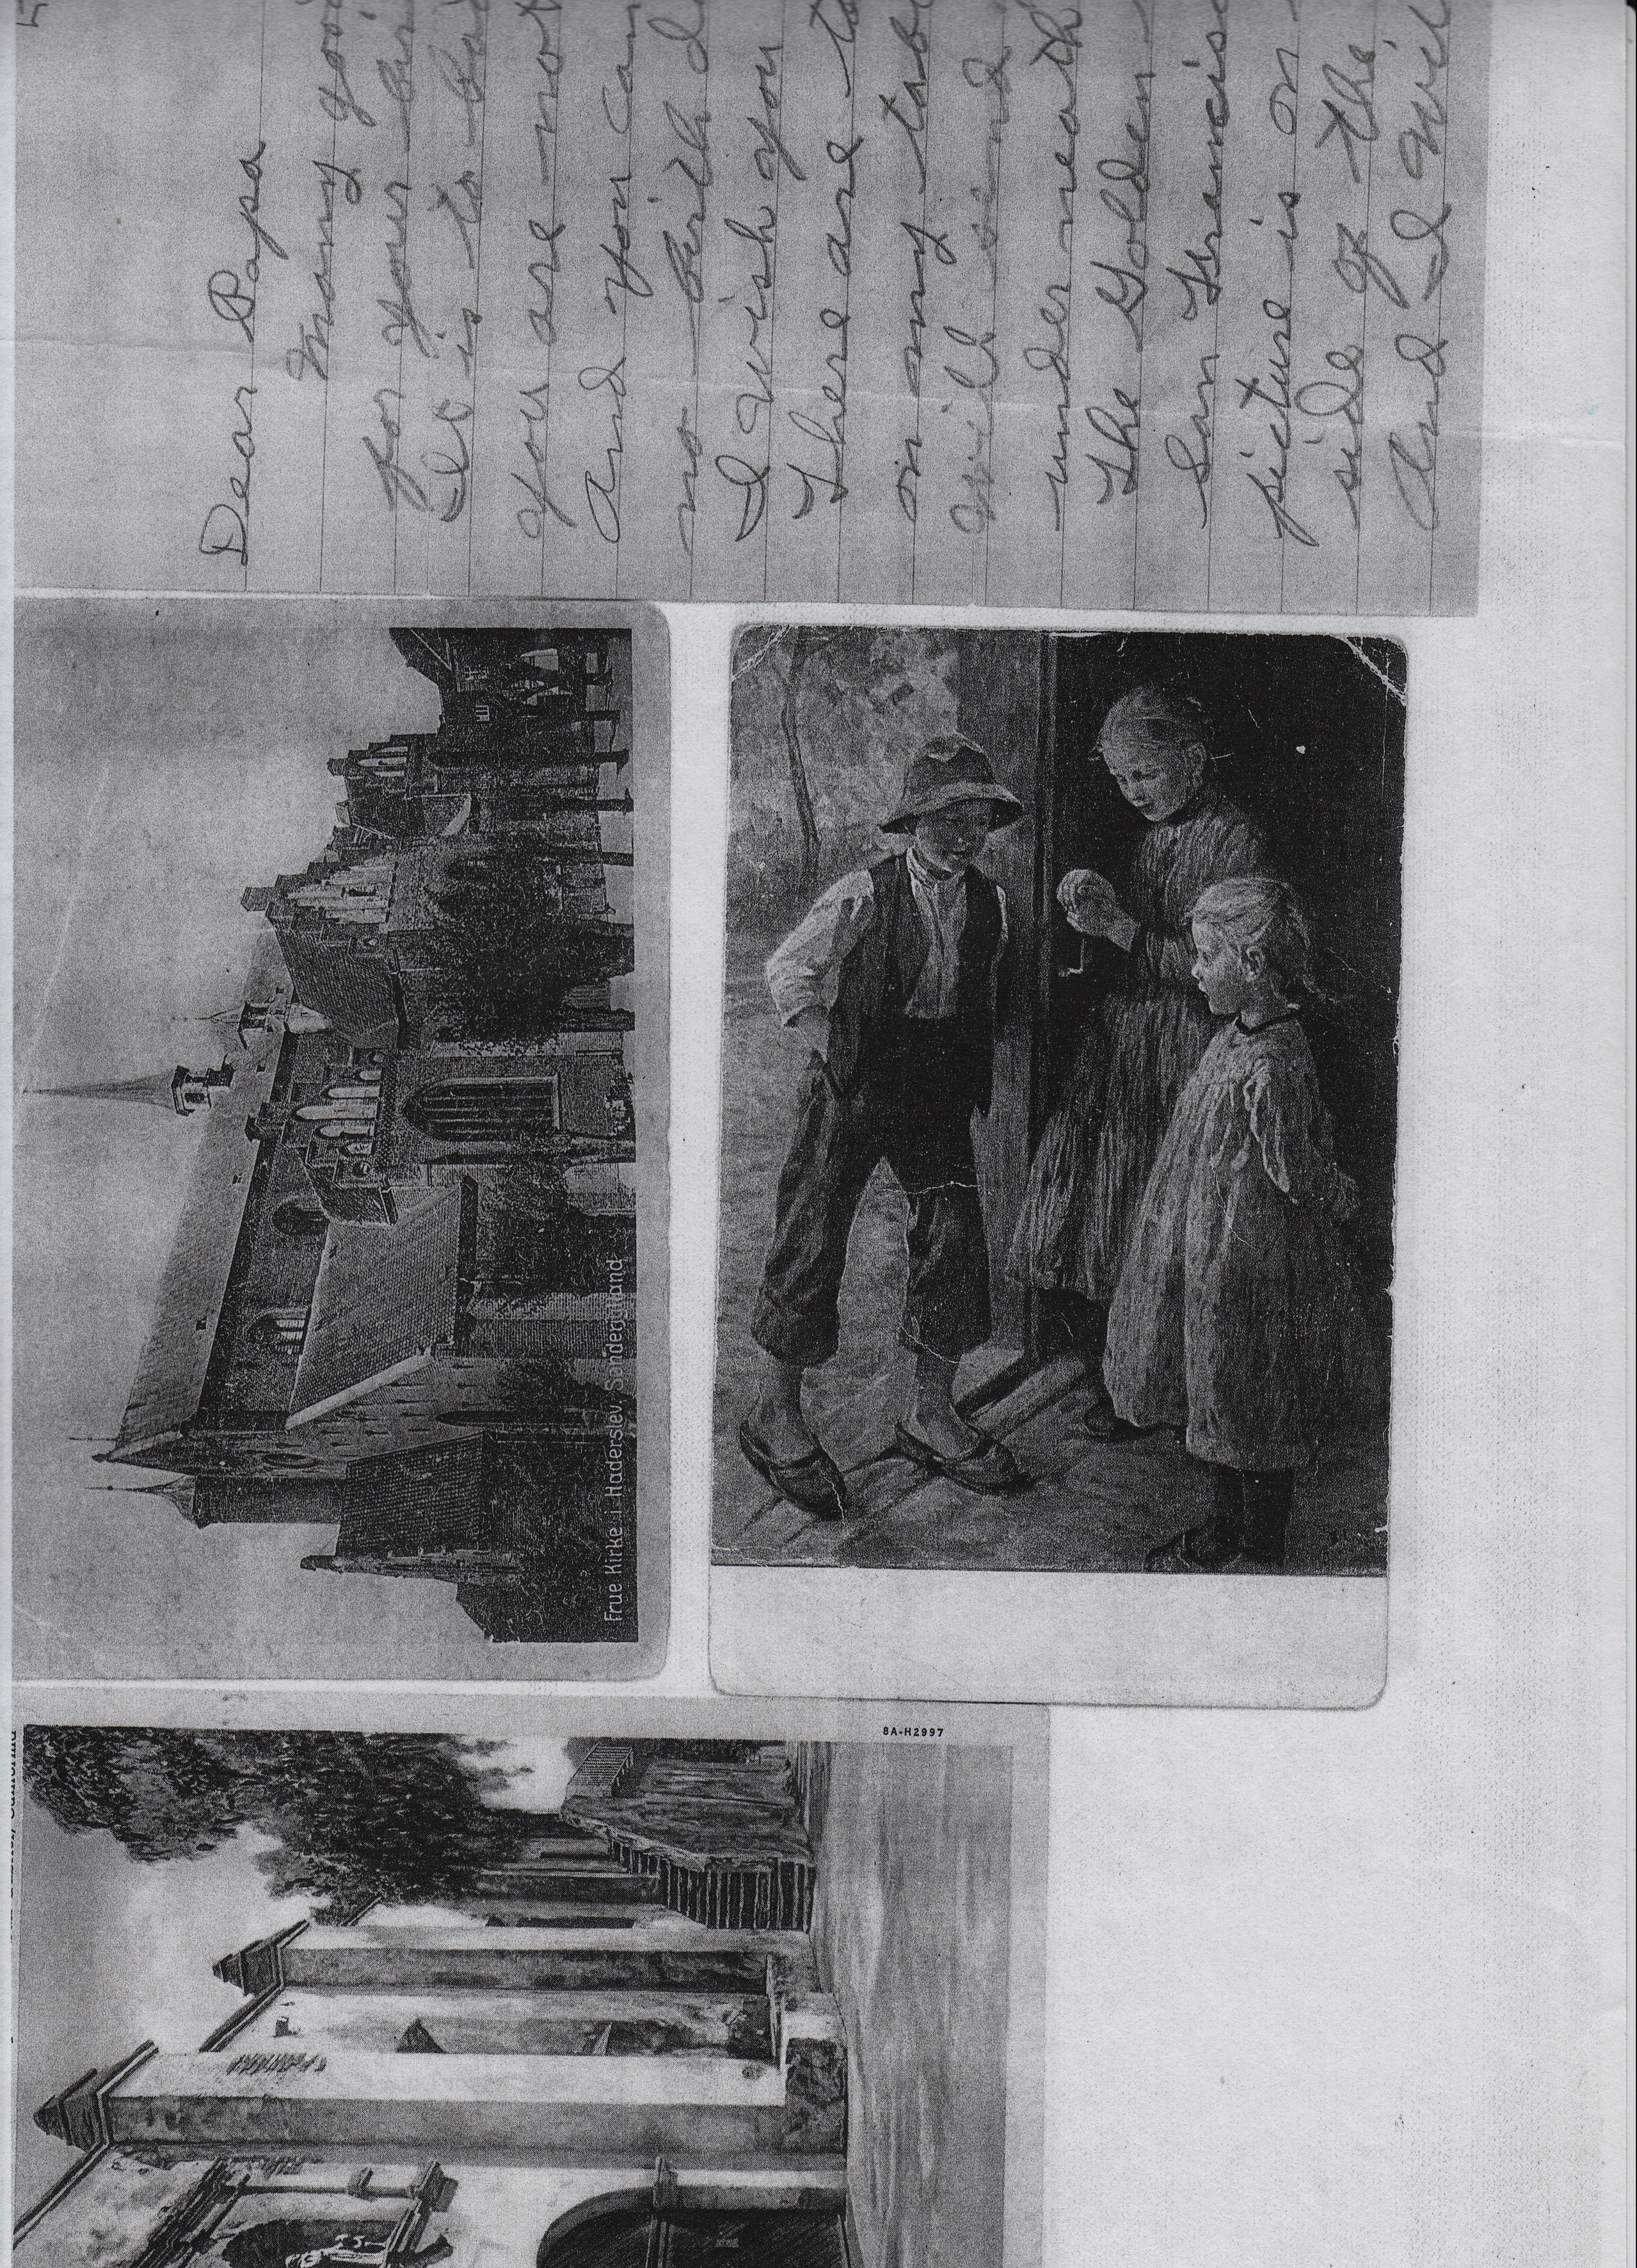 Dear Papa
Many good
for your bir
It is to bad
you are not
And you can
no birth d
I wish you
There are to
on my tab
will send
underneath
The Golden
San Francis
picture is on
side of the
And I wil
Frue Kirke i Haderslev, Sønderjylland
8A-H2997